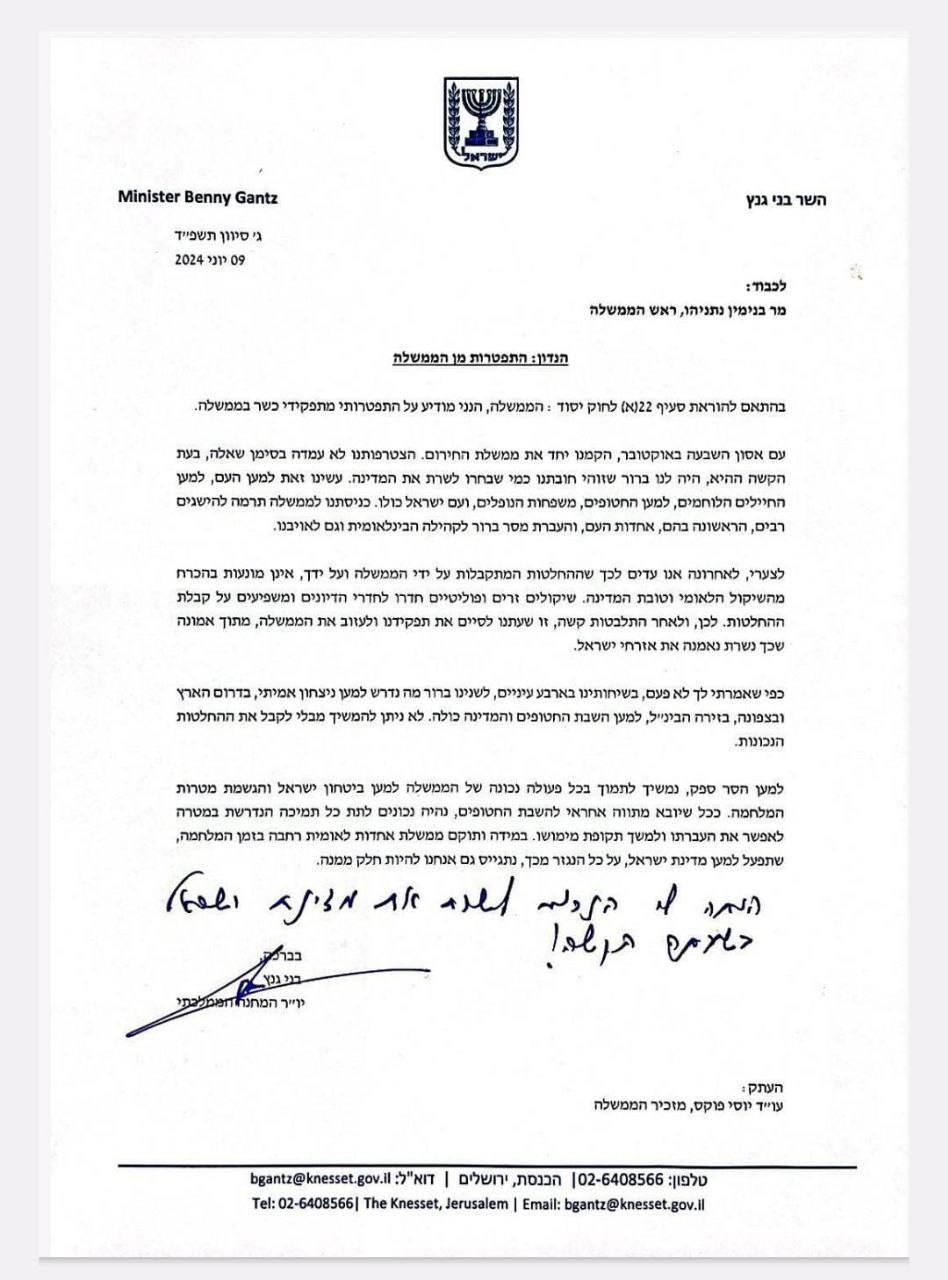 ישראל
Minister Benny Gantz
השר בני גנץ
ג' סיוון תשפ״ד
09 יוני 2024
לכבוד:
מר בנימין נתניהו, ראש הממשלה
הנדון: התפטרות מן הממשלה
בהתאם להוראת סעיף 22(א) לחוק יסוד : הממשלה, הנני מודיע על התפטרותי מתפקידי כשר בממשלה.
עם אסון השבעה באוקטובר, הקמנו יחד את ממשלת החירום. הצטרפותנו לא עמדה בסימן שאלה, בעת
הקשה ההיא, היה לנו ברור שזוהי חובתנו כמי שבחרו לשרת את המדינה. עשינו זאת למען העם, למען
החיילים הלוחמים, למען החטופים, משפחות הנופלים, ועם ישראל כולו. כניסתנו לממשלה תרמה להישגים
רבים, הראשונה בהם, אחדות העם, והעברת מסר ברור לקהילה הבינלאומית וגם לאויבנו.
לצערי, לאחרונה אנו עדים לכך שההחלטות המתקבלות על ידי הממשלה ועל ידך, אינן מונעות בהכרח
מהשיקול הלאומי וטובת המדינה. שיקולים זרים ופוליטיים חדרו לחדרי הדיונים ומשפיעים על קבלת
ההחלטות. לכן, ולאחר התלבטות קשה, זו שעתנו לסיים את תפקידנו ולעזוב את הממשלה, מתוך אמונה
שכך נשרת נאמנה את אזרחי ישראל.
כפי שאמרתי לך לא פעם, בשיחותינו בארבע עיניים, לשנינו ברור מה נדרש למען ניצחון אמיתי, בדרום הארץ
ובצפונה, בזירה הבינ״ל, למען השבת החטופים והמדינה כולה. לא ניתן להמשיך מבלי לקבל את ההחלטות
הנכונות.
למען הסר ספק, נמשיך לתמוך בכל פעולה נכונה של הממשלה למען ביטחון ישראל והגשמת מטרות
המלחמה. ככל שיובא מתווה אחראי להשבת החטופים, נהיה נכונים לתת כל תמיכה הנדרשת במטרה
לאפשר את העברתו ולמשך תקופת מימושו. במידה ותוקם ממשלת אחדות לאומית רחבה בזמן המלחמה,
שתפעל למען מדינת ישראל, על כל הנגזר מכך, נתגייס גם אנחנו להיות חלק ממנה.
לשרת את מדינת ישראל
בשעתה הקשה!
בברכה,
בני גנץ
יו״ר המחנה הממלכתי
העתק:
עו״ד יוסי פוקס, מזכיר הממשלה
טלפון: 02-6408566| הכנסת, ירושלים | דוא"ל: bgantz@knesset.gov.il
Tel: 02-6408566| The Knesset, Jerusalem | Email: bgantz@knesset.gov.il